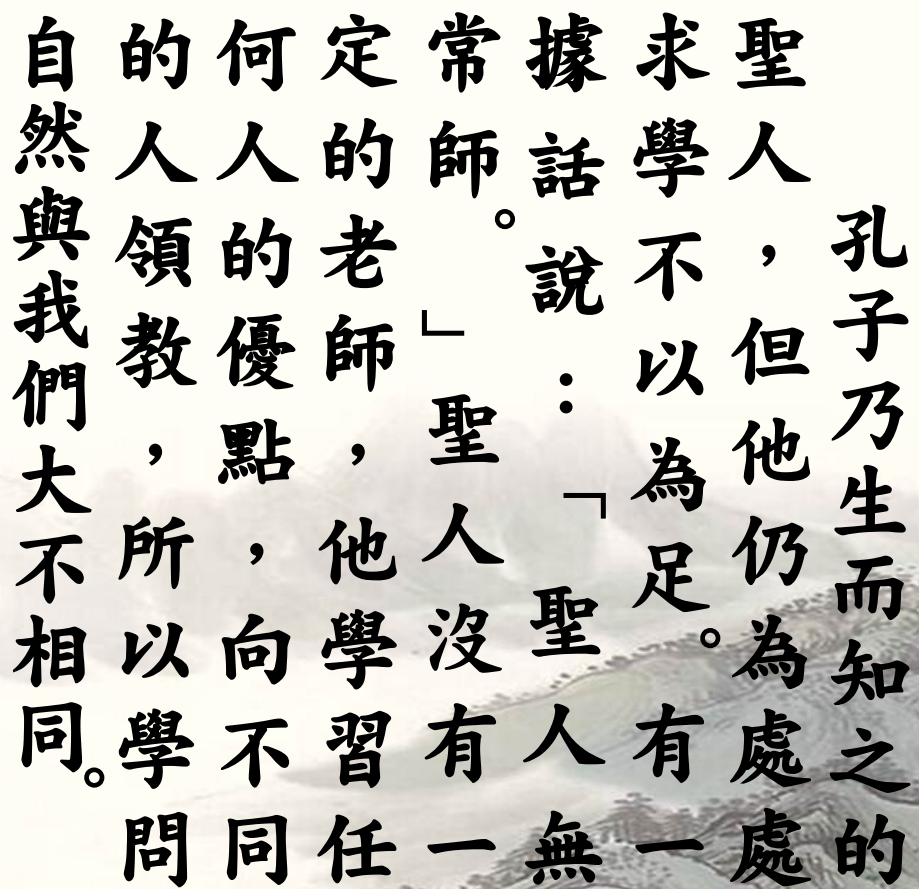 孔子乃生而知之的
聖人，但他仍為處處
求學不以為足。有一
據話說：「聖人無
常師。」聖人沒有一
定的老師，他學習任
何人的優點，向不同
的人領教，所以學問
自然與我們大不相同。